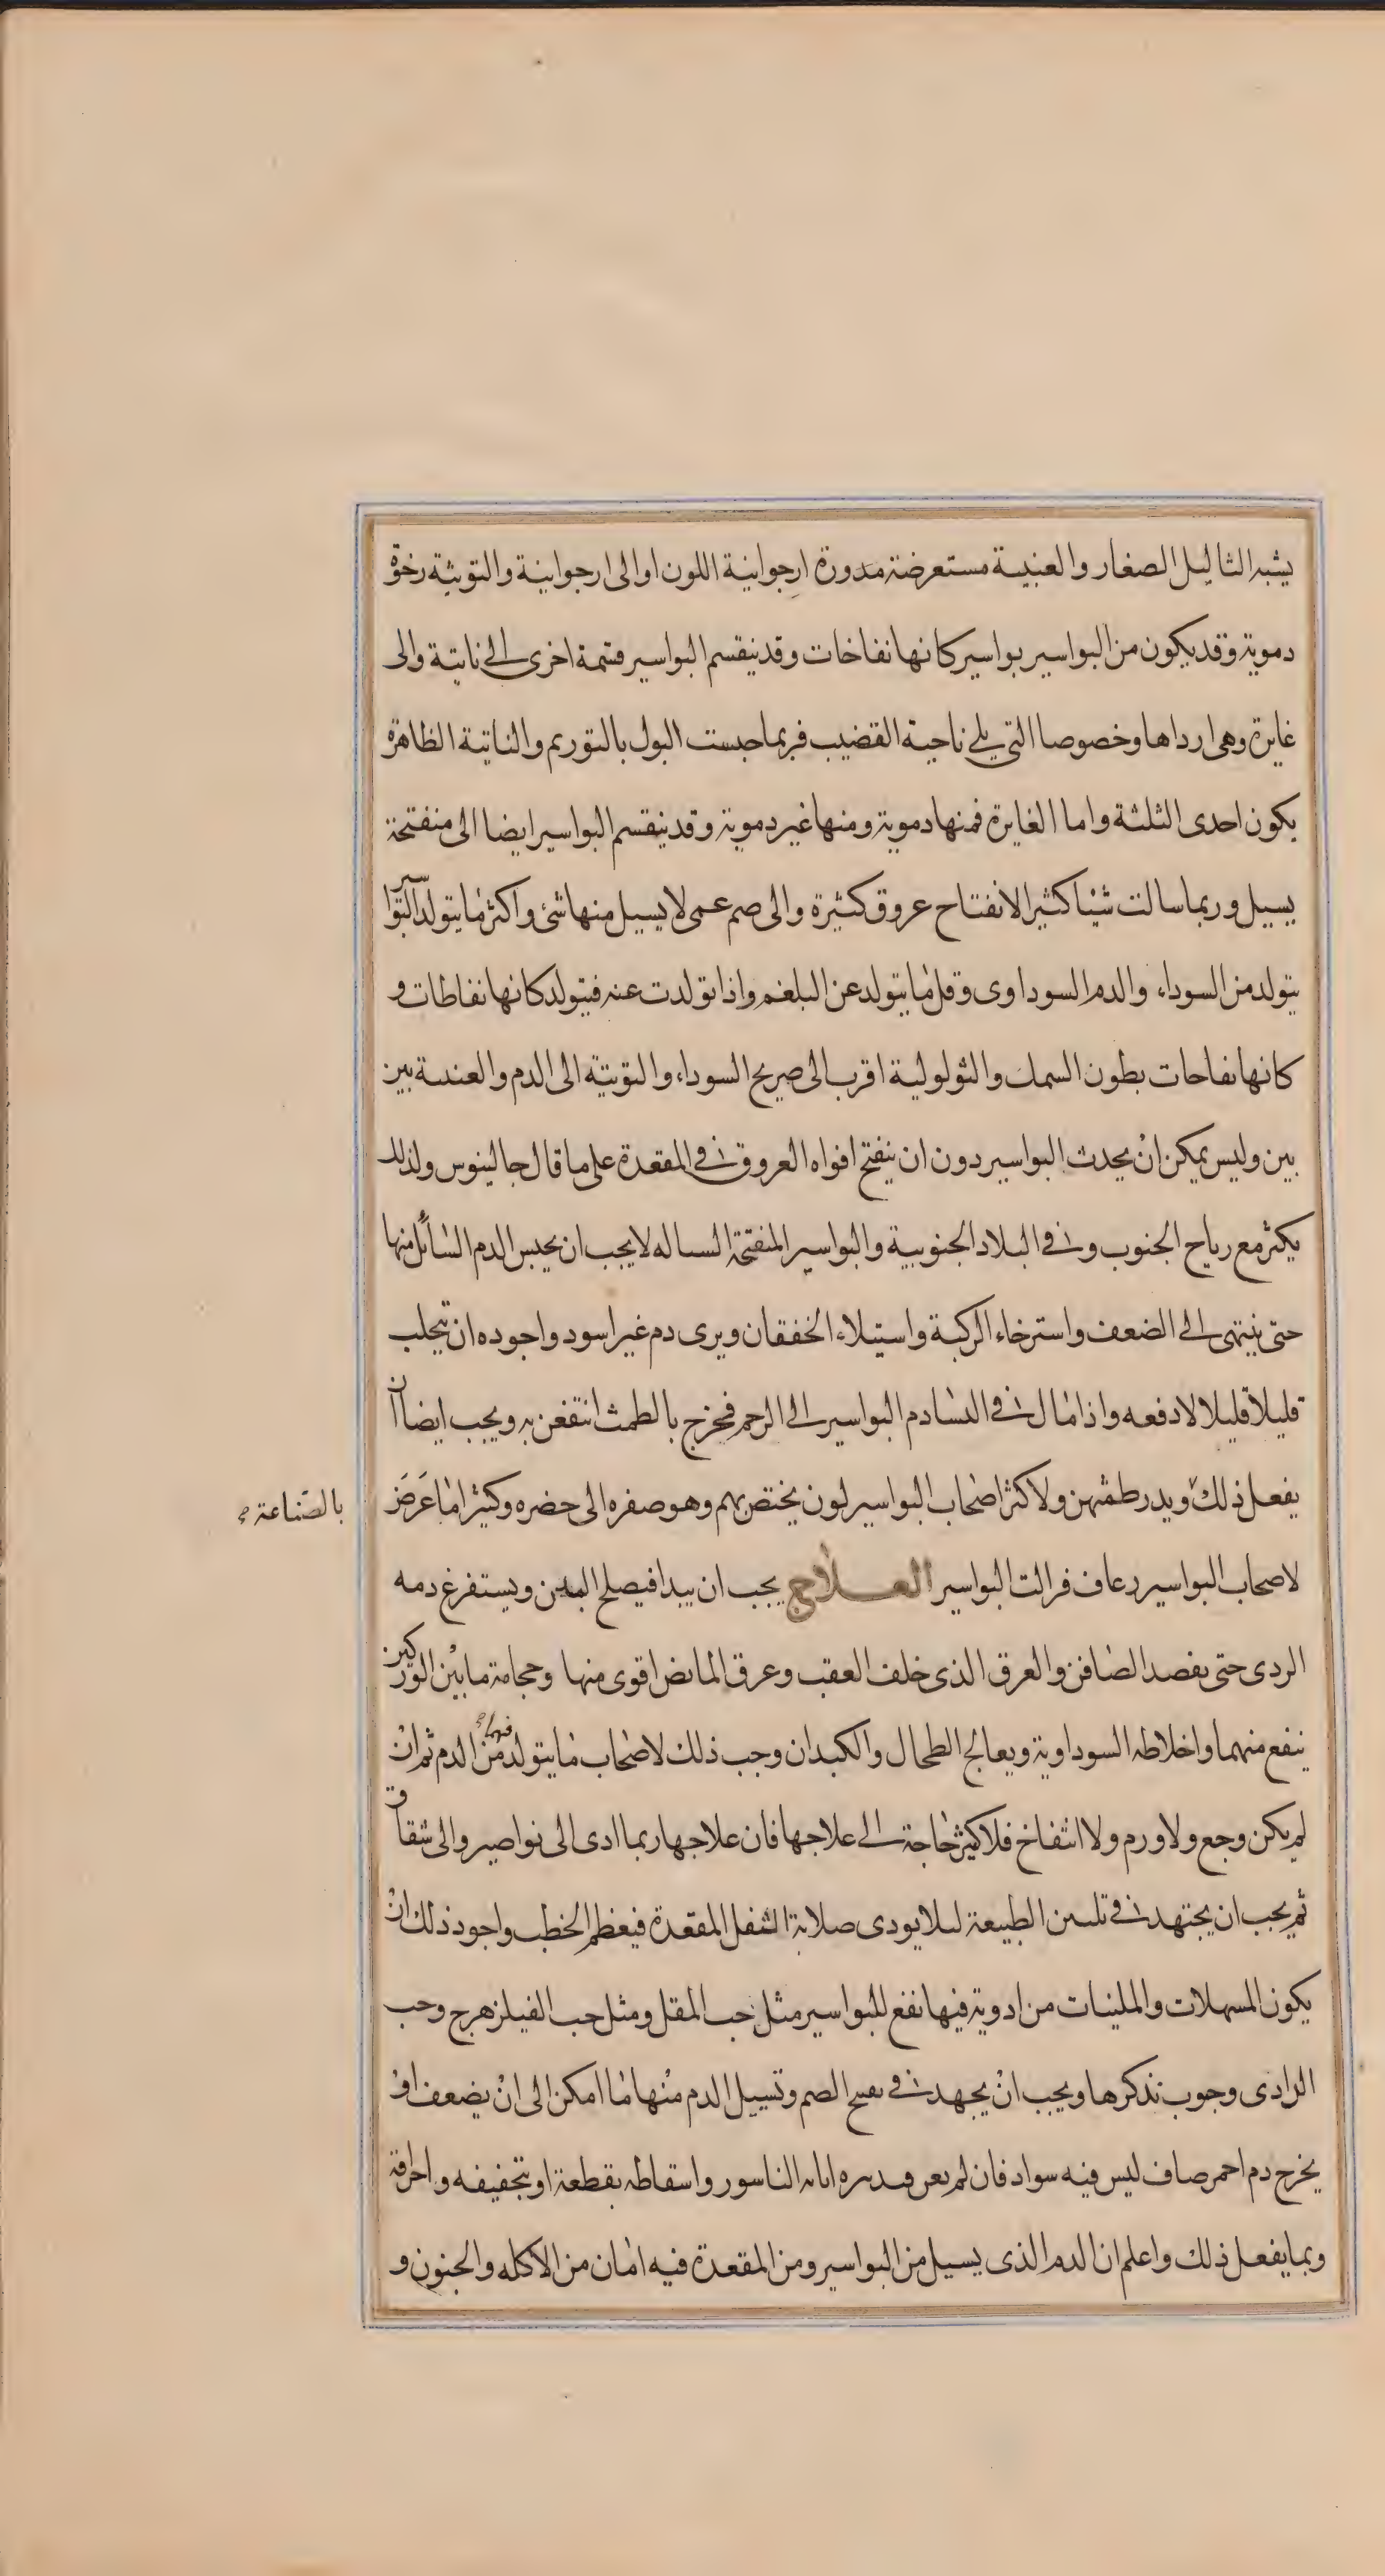 يشبه الثاليل الصغار والعنبية مستعرضة مدورة ارجوانية اللون او الى ارجوانية والتوتية رخوة
دموية وقد يكون من البواسير بواسير كانها نفاخات وقد ينقسم البواسير قسمة اخرى الى ناتية والى
غايرة وهى ارداها وخصوصا التى يلى ناحية القضيب فربما حبست البول بالتوريم والناتية الظاهرة
يكون احدى الثلثة واما الغايرة فمنها دموية ومنها غير دموية وقد ينقسم البواسير ايضا الى منفتحة
يسيل وربما سالت شيئا كثيرا لانفتاح عروق كثيرة والى صم عمى لا يسيل منها شئ واكثر ما يتولد البواسير
يتولد من السوداء والدم السوداوى وقل ما يتولد عن البلغم واذا تولدت عنه فيتولد كانها نفاطات و
كانها نفاحات بطون السمك والثولولية اقرب الى صريح السوداء والتوتية الى الدم والعنبية بين
بين وليس يمكن ان يحدث البواسير دون ان ينفتح افواه العروق فى المقعدة على ما قال جالينوس ولذلك
يكثر مع رياح الجنوب وفى البلاد الجنوبية والبواسير المنفتحة السياله لا يجب ان يحبس الدم السائل منها
حتى ينتهى الى الضعف واسترخاء الركبة واستيلاء الخفقان ويرى دم غير اسود واجوده ان يتحلب
قليلا قليلا لا دفعه واذا مال فى النسا دم البواسير الى الرحم فخرج بالطمث انتفعن به ويجب ايضا ان
يفعل ذلك ويدر طمثهن ولاكثر اصحاب البواسير لون يختص بهم وهو صفره الى خضره وكثيرا ما عرض
بالصناعة
لاصحاب البواسير رعاف فزالت البواسير العلاج يجب ان يبدا فيصلح البدن ويستفرغ دمه
الردى حتى بفصد الصافن والعرق الذى خلف العقب وعرق المابض اقوى منها وحجامة ما بين الوركين
ينفع منهما واخلاطه السوداوية ويعالج الطحال والكبد ان وجب ذلك لاصحاب ما يتولد فيهما من الدم ثم ان
لم يكن وجع ولا ورم ولا انتفاخ فلا كثير حاجة الى علاجها فان علاجها ربما ادى الى نواصير والى شقاق
ثم يجب ان يجتهد فى تليين الطبيعة ليلا يودى صلابة الثفل المقعدة فيعظم الخطب واجود ذلك ان
يكون المسهلات والملينات من ادوية فيها نفع للبواسير مثل حب المقل ومثل حب الفيلزهرج وحب
الدادى وجوب نذكرها ويجب ان يجهد فى تفتيح الصم وتسييل الدم منها ما امكن الى ان يضعف او
يخرج دم احمر صاف ليس فيه سواد فان لم يغن الناسور واسقاطه بقطعة او بتجفيفه واحراقه
وبما يفعل ذلك واعلم ان الدم الذى يسيل من البواسير ومن المقعدة فيه امان من الاكله والجنون و